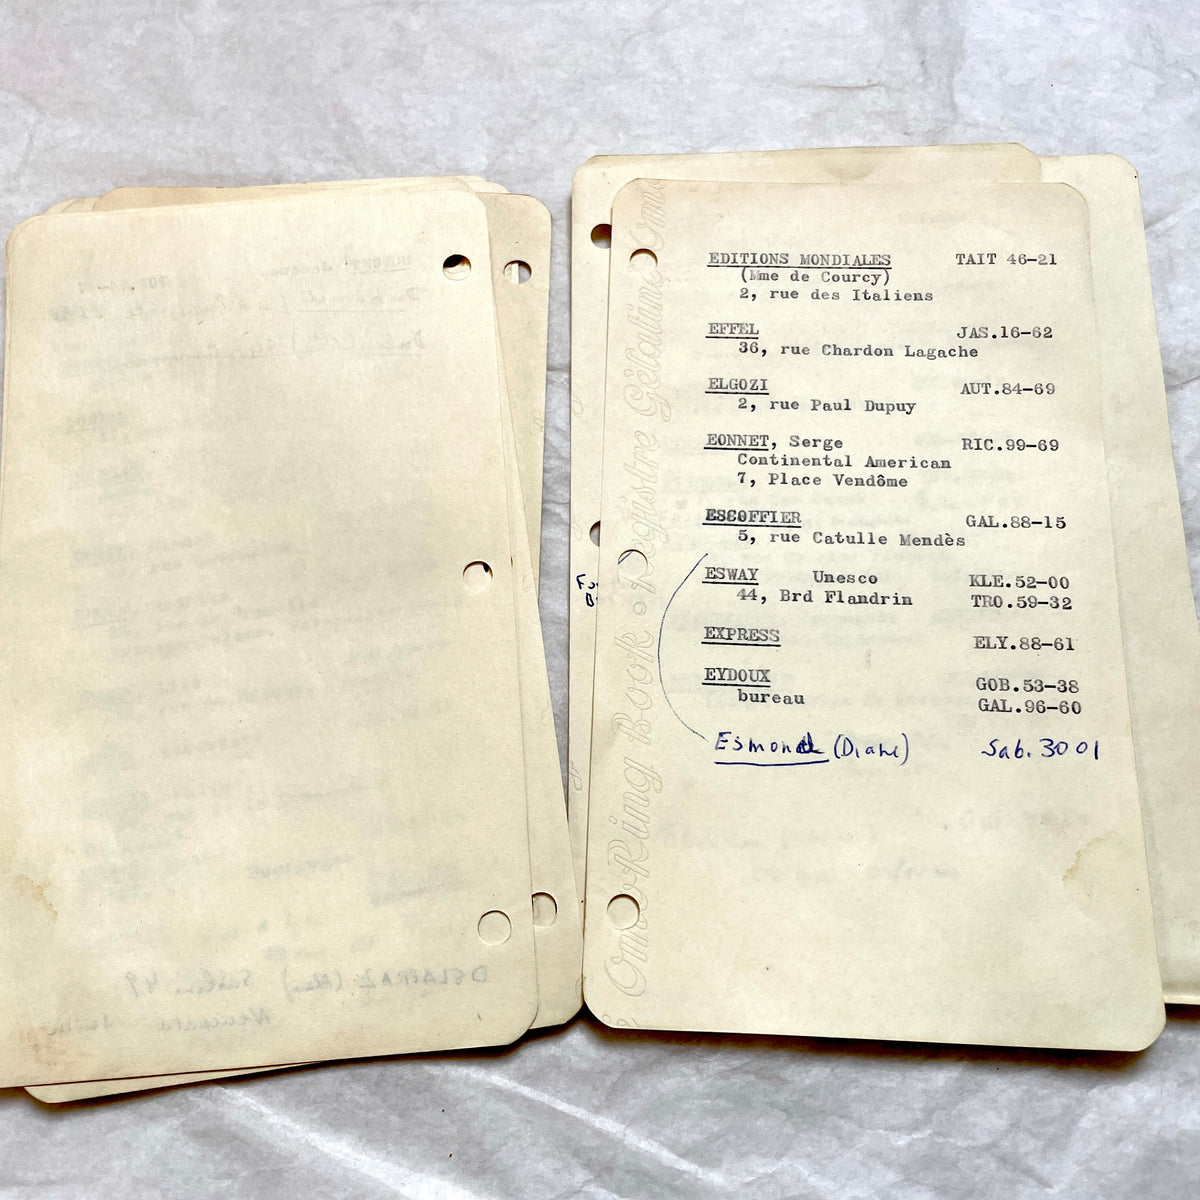 EDITIONS MONDIALES TAIT 46-21
(Mme de Courcy)
2, rue des Italiens
EFFEL JAS.16-62
36, rue Chardon Lagache
ELGOZI AUT.84-69
2, rue Paul Dupuy
EONNET, Serge RIC.99-69
Continental American
7, Place Vendôme
ESCOFFIER GAL.88-15
5, rue Catulle Mendès
ESWAY Unesco KLE.52-00
44, Brd Flandrin TRO.59-32
EXPRESS ELY.88-61
EYDOUX GOB.53-38
bureau GAL.96-60
Esmond (Diane) Sab. 3001
Omo Ring Book • Registre Gélatine Omo